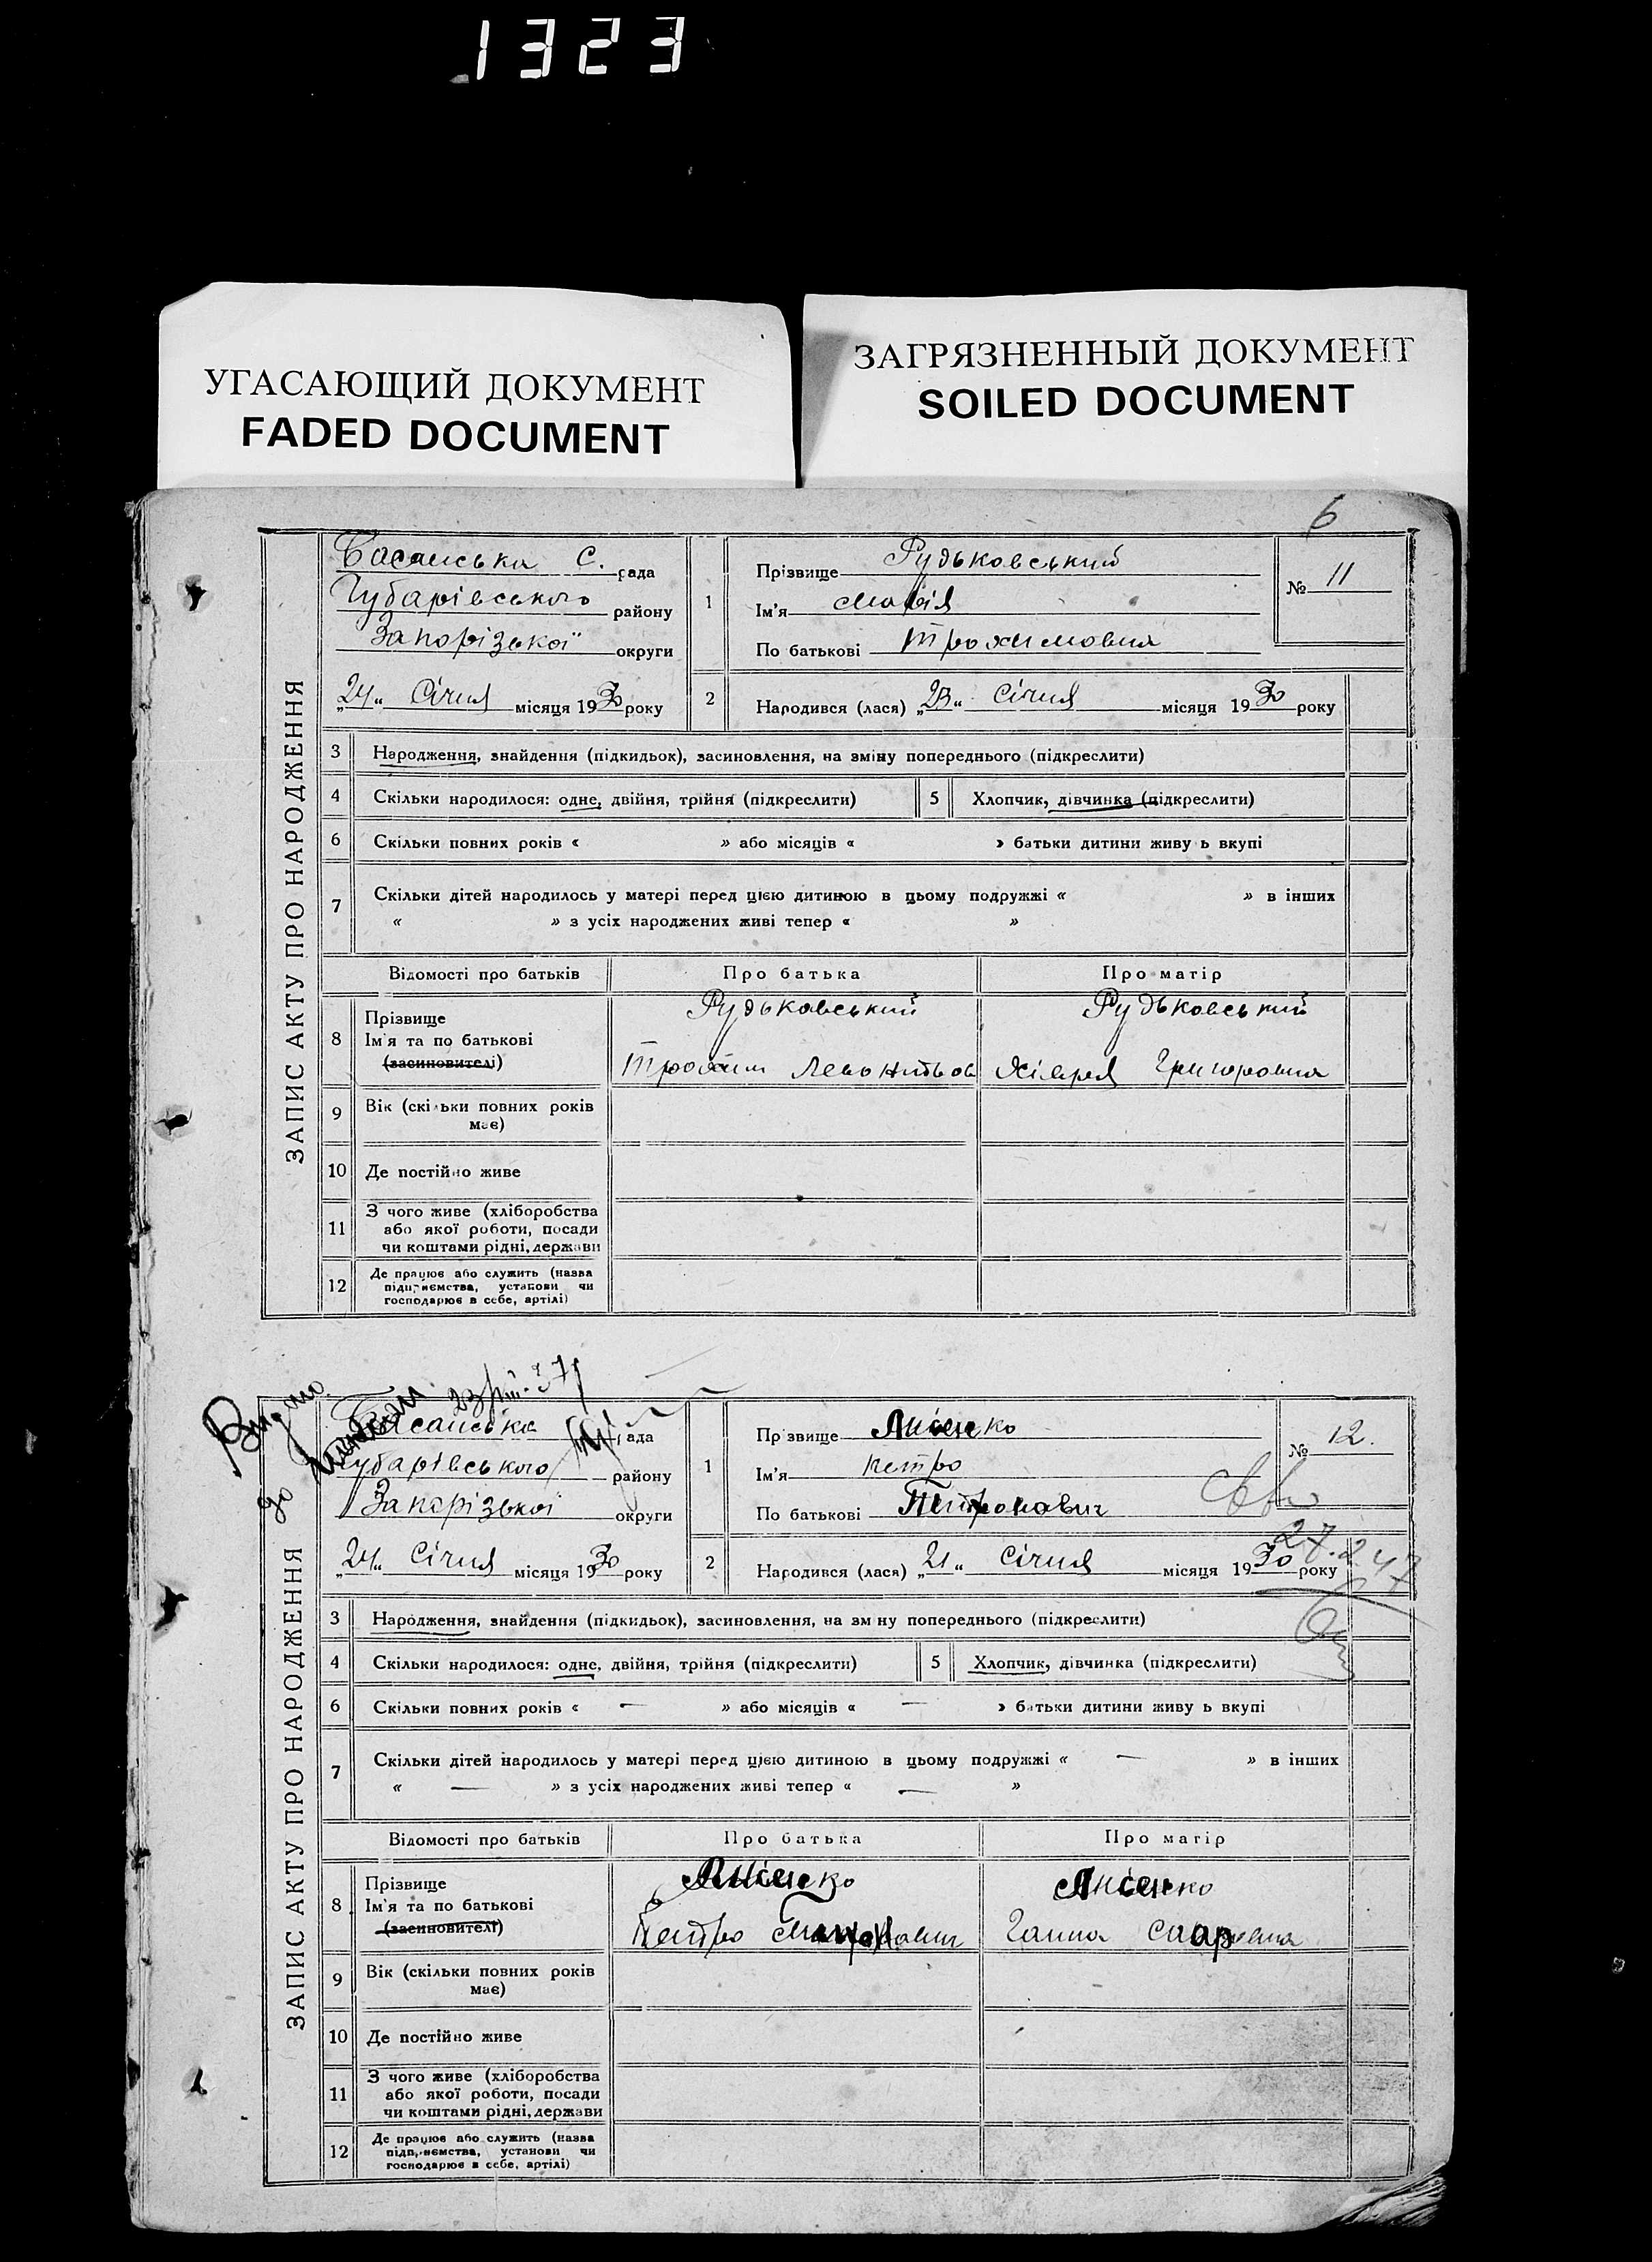 1323
УГАСАЮЩИЙ ДОКУМЕНТ
FADED DOCUMENT
ЗАГРЯЗНЕННЫЙ ДОКУМЕНТ
SOILED DOCUMENT
6
ЗАПИС АКТУ ПРО НАРОДЖЕННЯ
Басанська С. рада
Чубарівського району
Запорізької округи
„24“ Січня місяця 1930 року
1
Прізвище Рудьковський
Ім'я Марія
По батькові Трохимовна
№ 11
2 Народився (лася) „23“ Січня місяця 1930 року
3 Народження, знайдення (підкидьок), засиновлення, на зміну попереднього (підкреслити)
4 Скільки народилося: одне, двійня, трійня (підкреслити) 5 Хлопчик, дівчинка (підкреслити)
6 Скільки повних років « » або місяців « » батьки дитини живу ь вкупі
7 Скільки дітей народилось у матері перед цією дитиною в цьому подружжі « » в інших
« » з усіх народжених живі тепер « »
Відомості про батьків Про батька Про матір
8 Прізвище Рудьковський Рудьковський
Ім'я та по батькові
(засиновителі) Трохим Григоровна
9 Вік (скільки повних років
має)
10 Де постійно живе
11 З чого живе (хліборобства
або якої роботи, посади
чи коштами рідні, держави
12 Де працює або служить (назва
підприємства, установи чи
господарює в себе, артілі)
Видно
23/VIII-37
ЗАПИС АКТУ ПРО НАРОДЖЕННЯ
Басанська рада
Чубарівського району
Запорізької округи
„24“ Січня місяця 1930 року
1
Прізвище Лисенко
Ім'я Петро
По батькові Петрович
№ 12.
27.2.47
2 Народився (лася) „21“ Січня місяця 1930 року
3 Народження, знайдення (підкидьок), засиновлення, на зміну попереднього (підкреслити)
4 Скільки народилося: одне, двійня, трійня (підкреслити) 5 Хлопчик, дівчинка (підкреслити)
6 Скільки повних років « — » або місяців « — » батьки дитини живу ь вкупі
7 Скільки дітей народилось у матері перед цією дитиною в цьому подружжі « — » в інших
« — » з усіх народжених живі тепер « — »
Відомості про батьків Про батька Про матір
8 Прізвище Лисенко Лисенко
Ім'я та по батькові
(засиновителі) Петро Ганна
9 Вік (скільки повних років
має)
10 Де постійно живе
11 З чого живе (хліборобства
або якої роботи, посади
чи коштами рідні, держави
12 Де працює або служить (назва
підприємства, установи чи
господарює в себе, артілі)